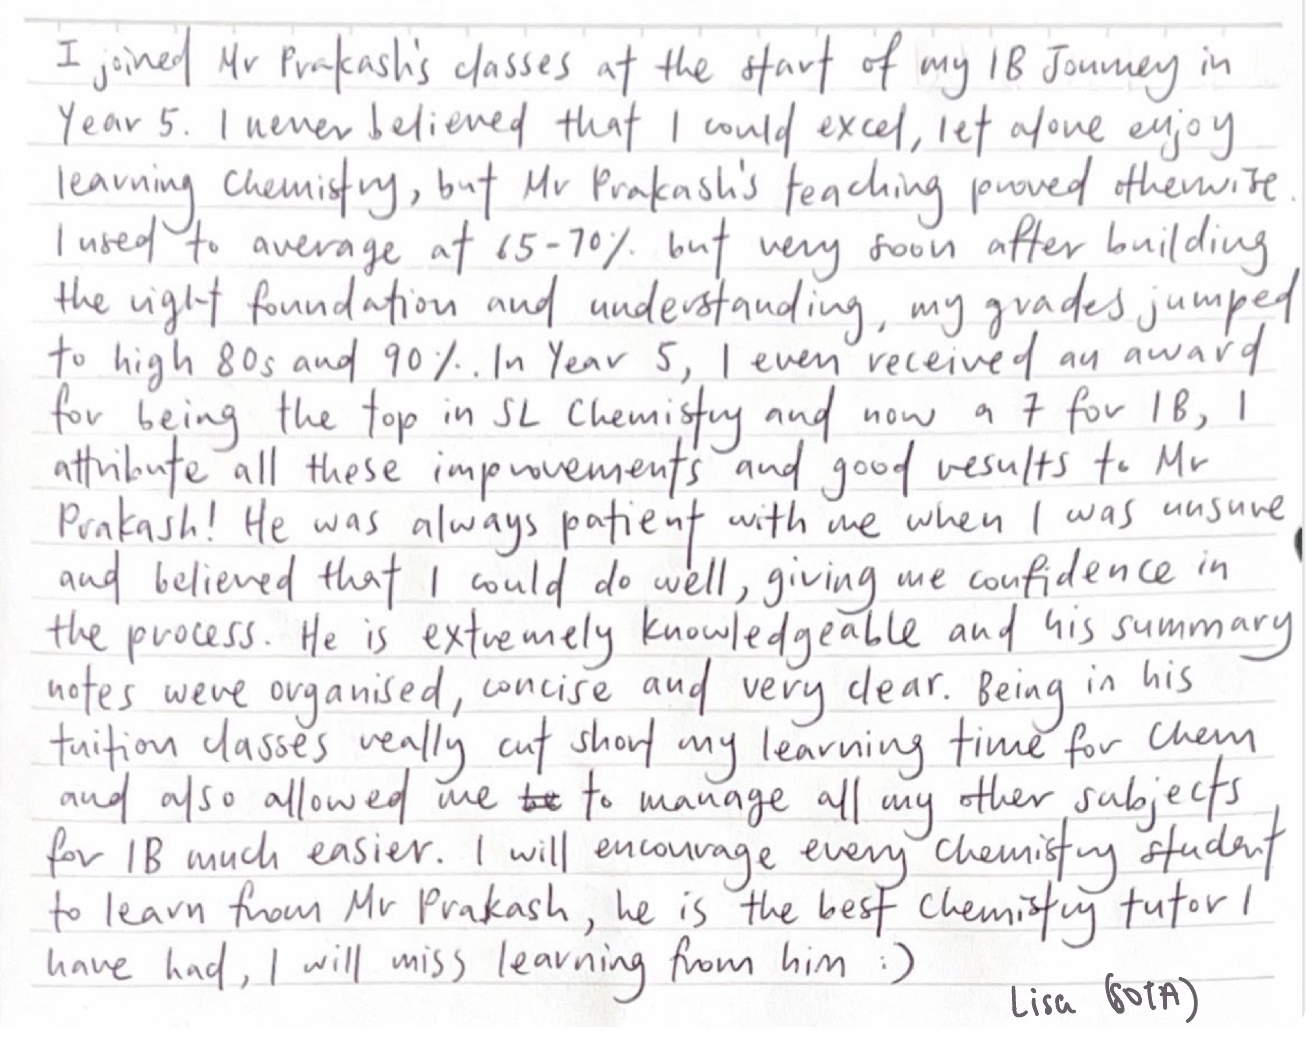 I joined Mr Prakash's classes at the start of my IB Journey in
Year 5. I never believed that I could excel, let alone enjoy
learning Chemistry, but Mr Prakash's teaching proved otherwise.
I used to average at 65-70% but very soon after building
the right foundation and understanding, my grades jumped
to high 80s and 90%. In Year 5, I even received an award
for being the top in SL Chemistry and now a 7 for IB, I
attribute all these improvements and good results to Mr
Prakash! He was always patient with me when I was unsure
and believed that I could do well, giving me confidence in
the process. He is extremely knowledgeable and his summary
notes were organised, concise and very clear. Being in his
tuition classes really cut short my learning time for Chem
and also allowed me to manage all my other subjects
for IB much easier. I will encourage every Chemistry student
to learn from Mr Prakash, he is the best Chemistry tutor I
have had, I will miss learning from him :)
Lisa (SOTA)